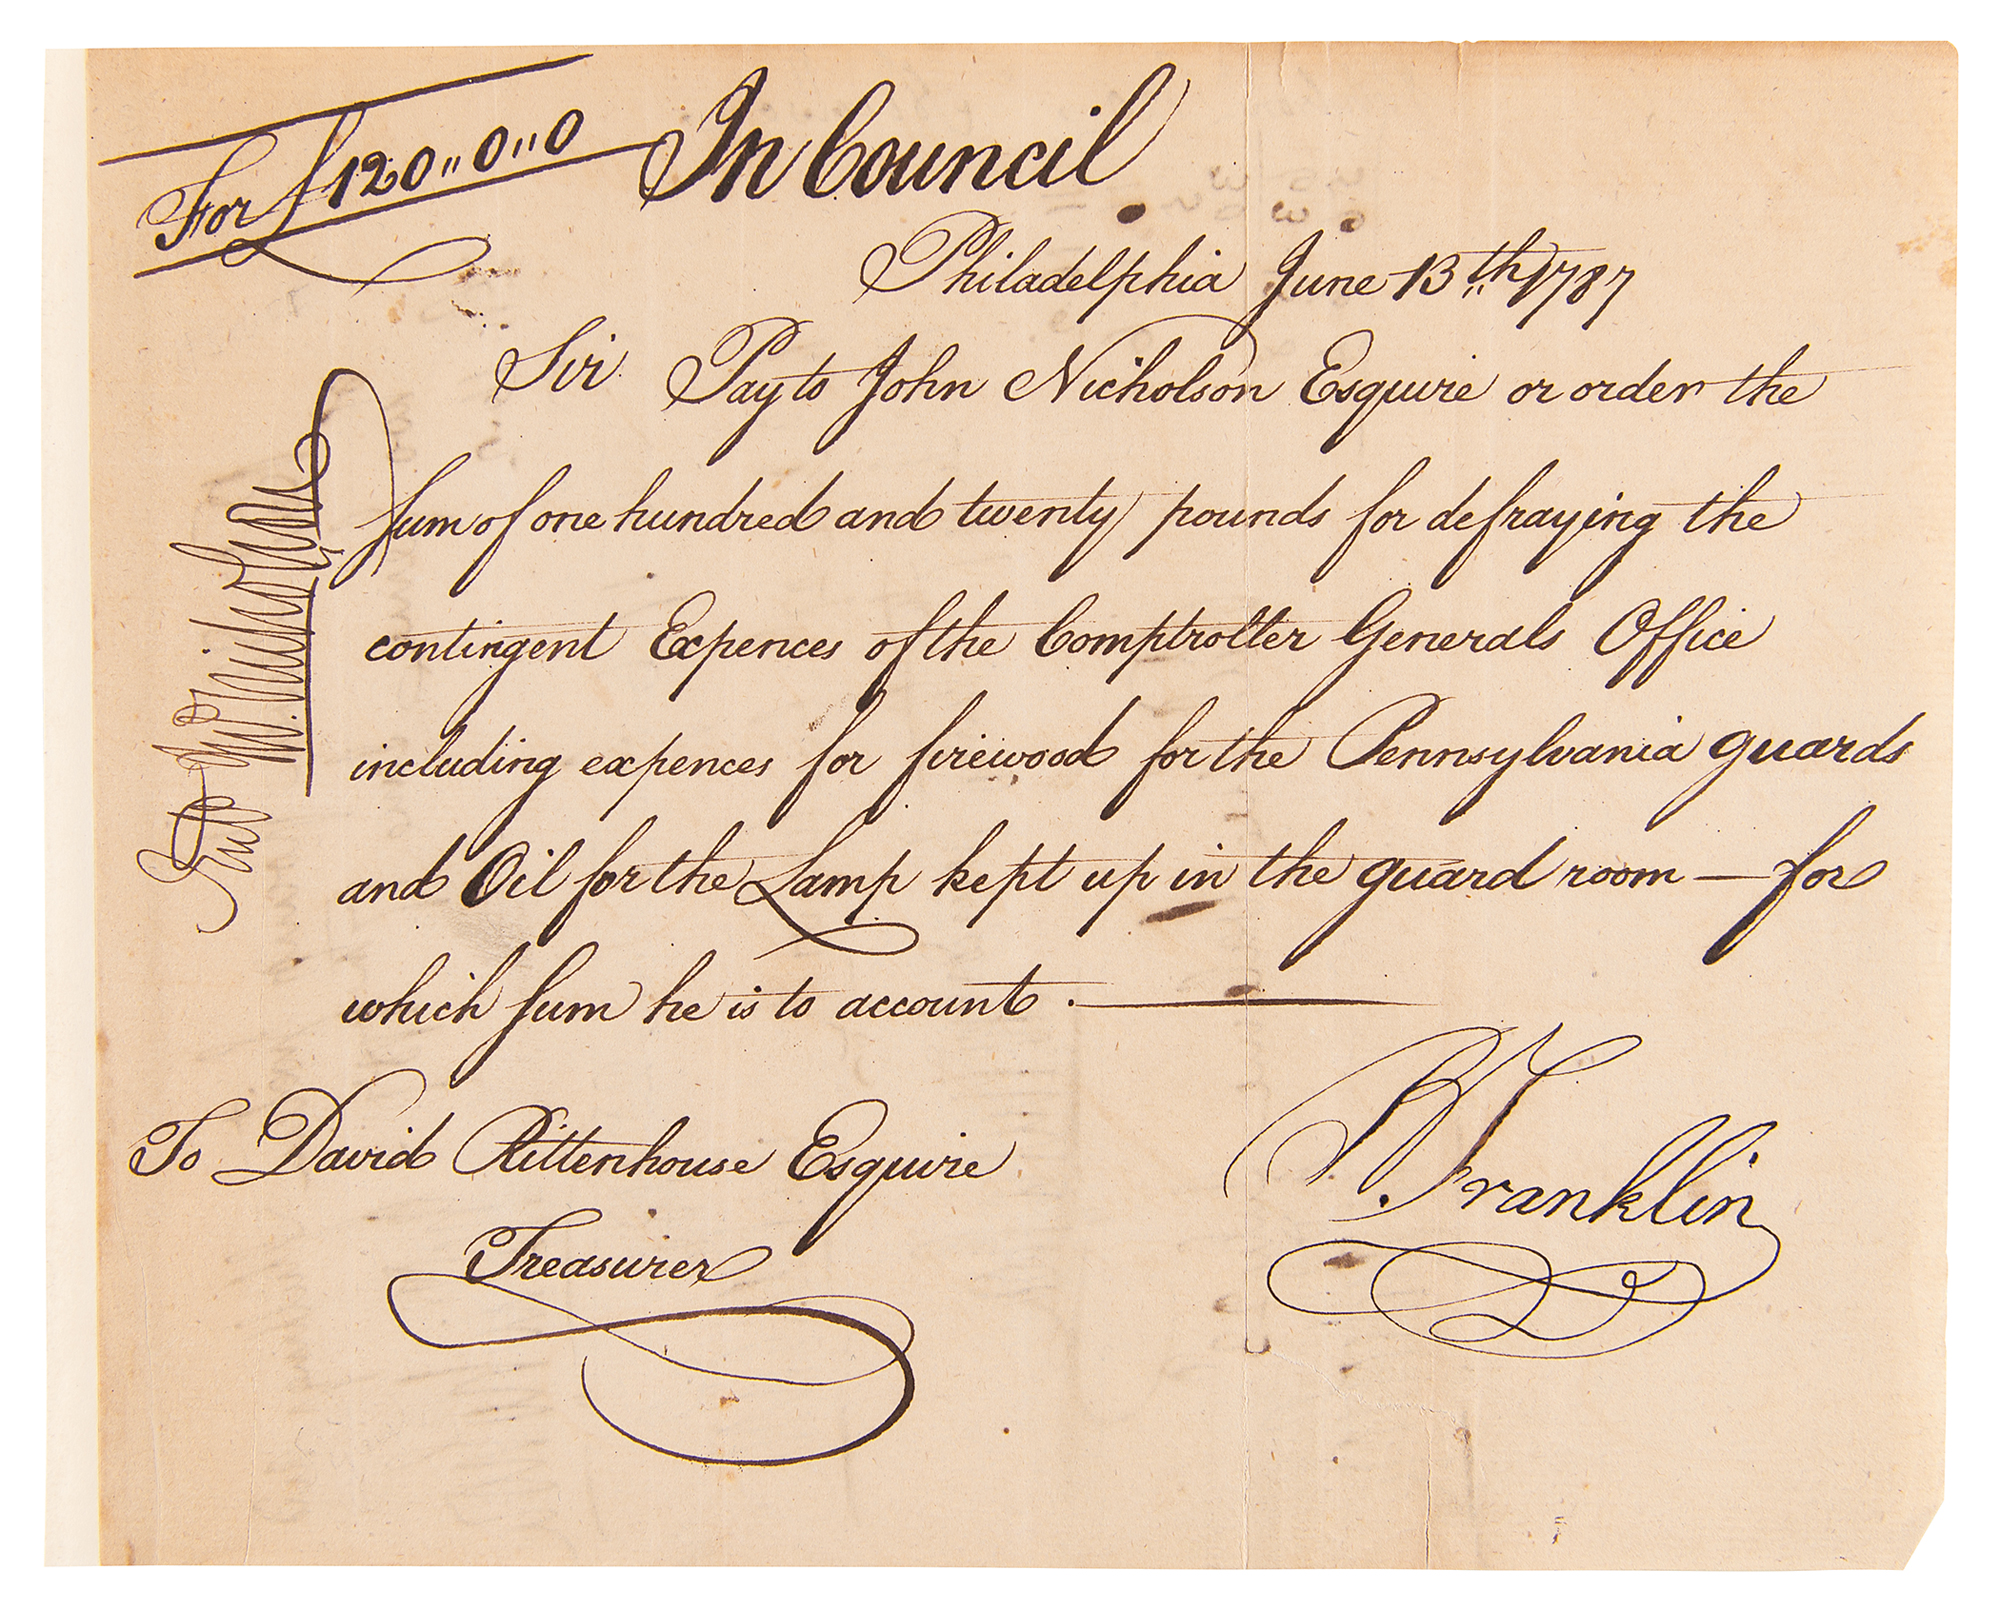 For £120,,0,,0
In Council
Philadelphia June 13th,, 1787
Sir Pay to John Nicholson Esquire or order the
sum of one hundred and twenty pounds for defraying the
contingent Expences of the Comptroller Generals Office
including expences for firewood for the Pennsylvania guards
and Oil for the Lamp kept up in the guard room — for
which sum he is to account. —
B. Franklin
To David Rittenhouse Esquire
Treasurer
Nicholson